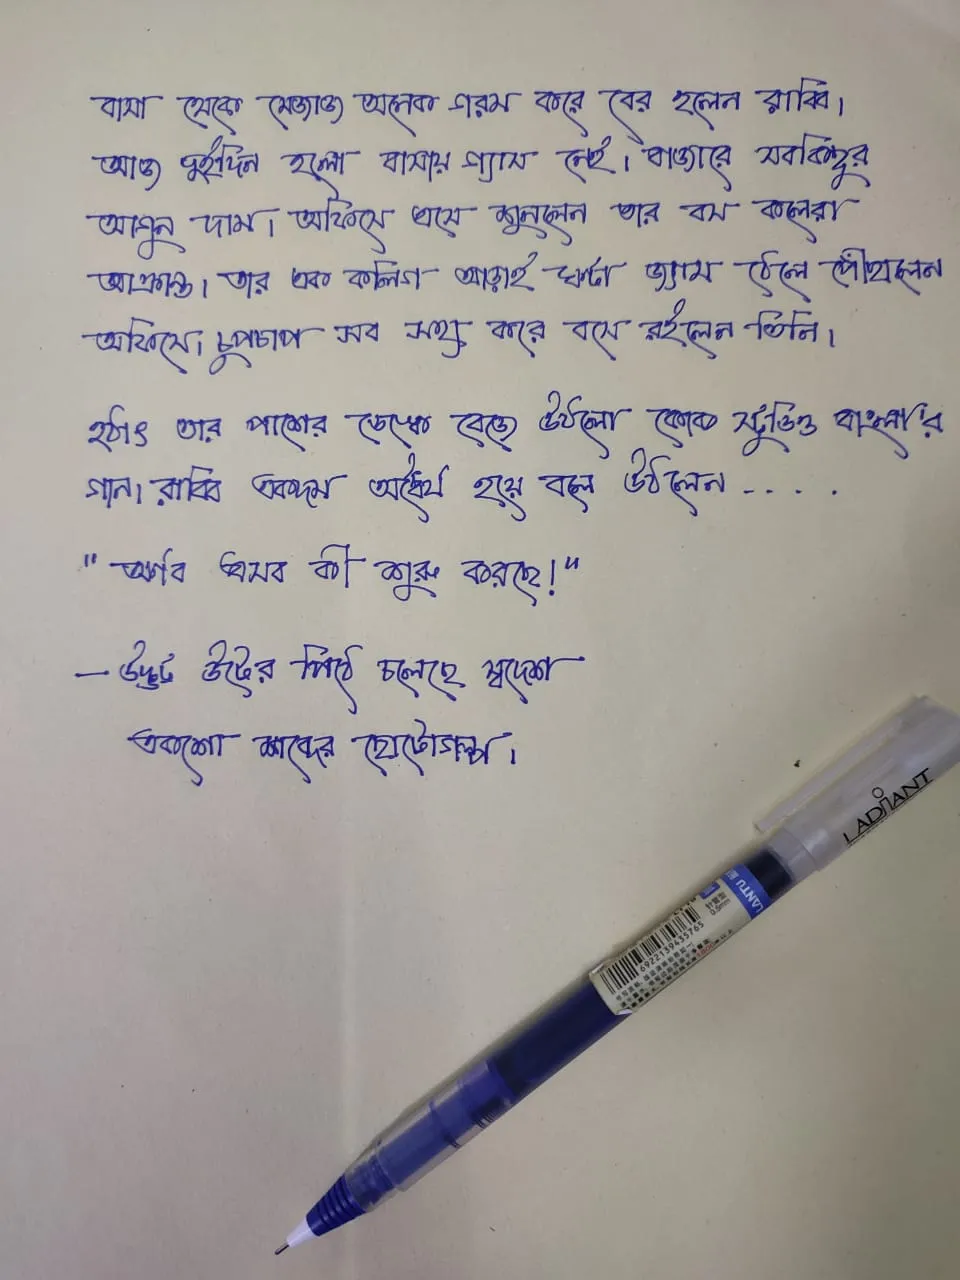 বাসা থেকে মেজাজ অনেক গরম করে বের হলেন রাব্বি।
আজ দুইদিন হলো বাসায় গ্যাস নেই। বাজারে সবকিছুর
আগুন দাম। অফিসে এসে শুনলেন তার বস কলেরা
আক্রান্ত। তার এক কলিগ আড়াই ঘন্টা জ্যাম ঠেলে পৌঁছালেন
অফিসে। চুপচাপ সব সহ্য করে বসে রইলেন তিনি।
হঠাৎ তার পাশের ডেস্কে বেজে উঠলো কোক স্টুডিও বাংলা'র
গান। রাব্বি একদম অধৈর্য হয়ে বলে উঠলেন .....
" অর্ণব এসব কী শুরু করছে!"
- উদ্ভট উটের পিঠে চলেছে স্বদেশ
একশো শব্দের ছোটোগল্প।
LADMANT
LANTU
0.5mm
6922139435765